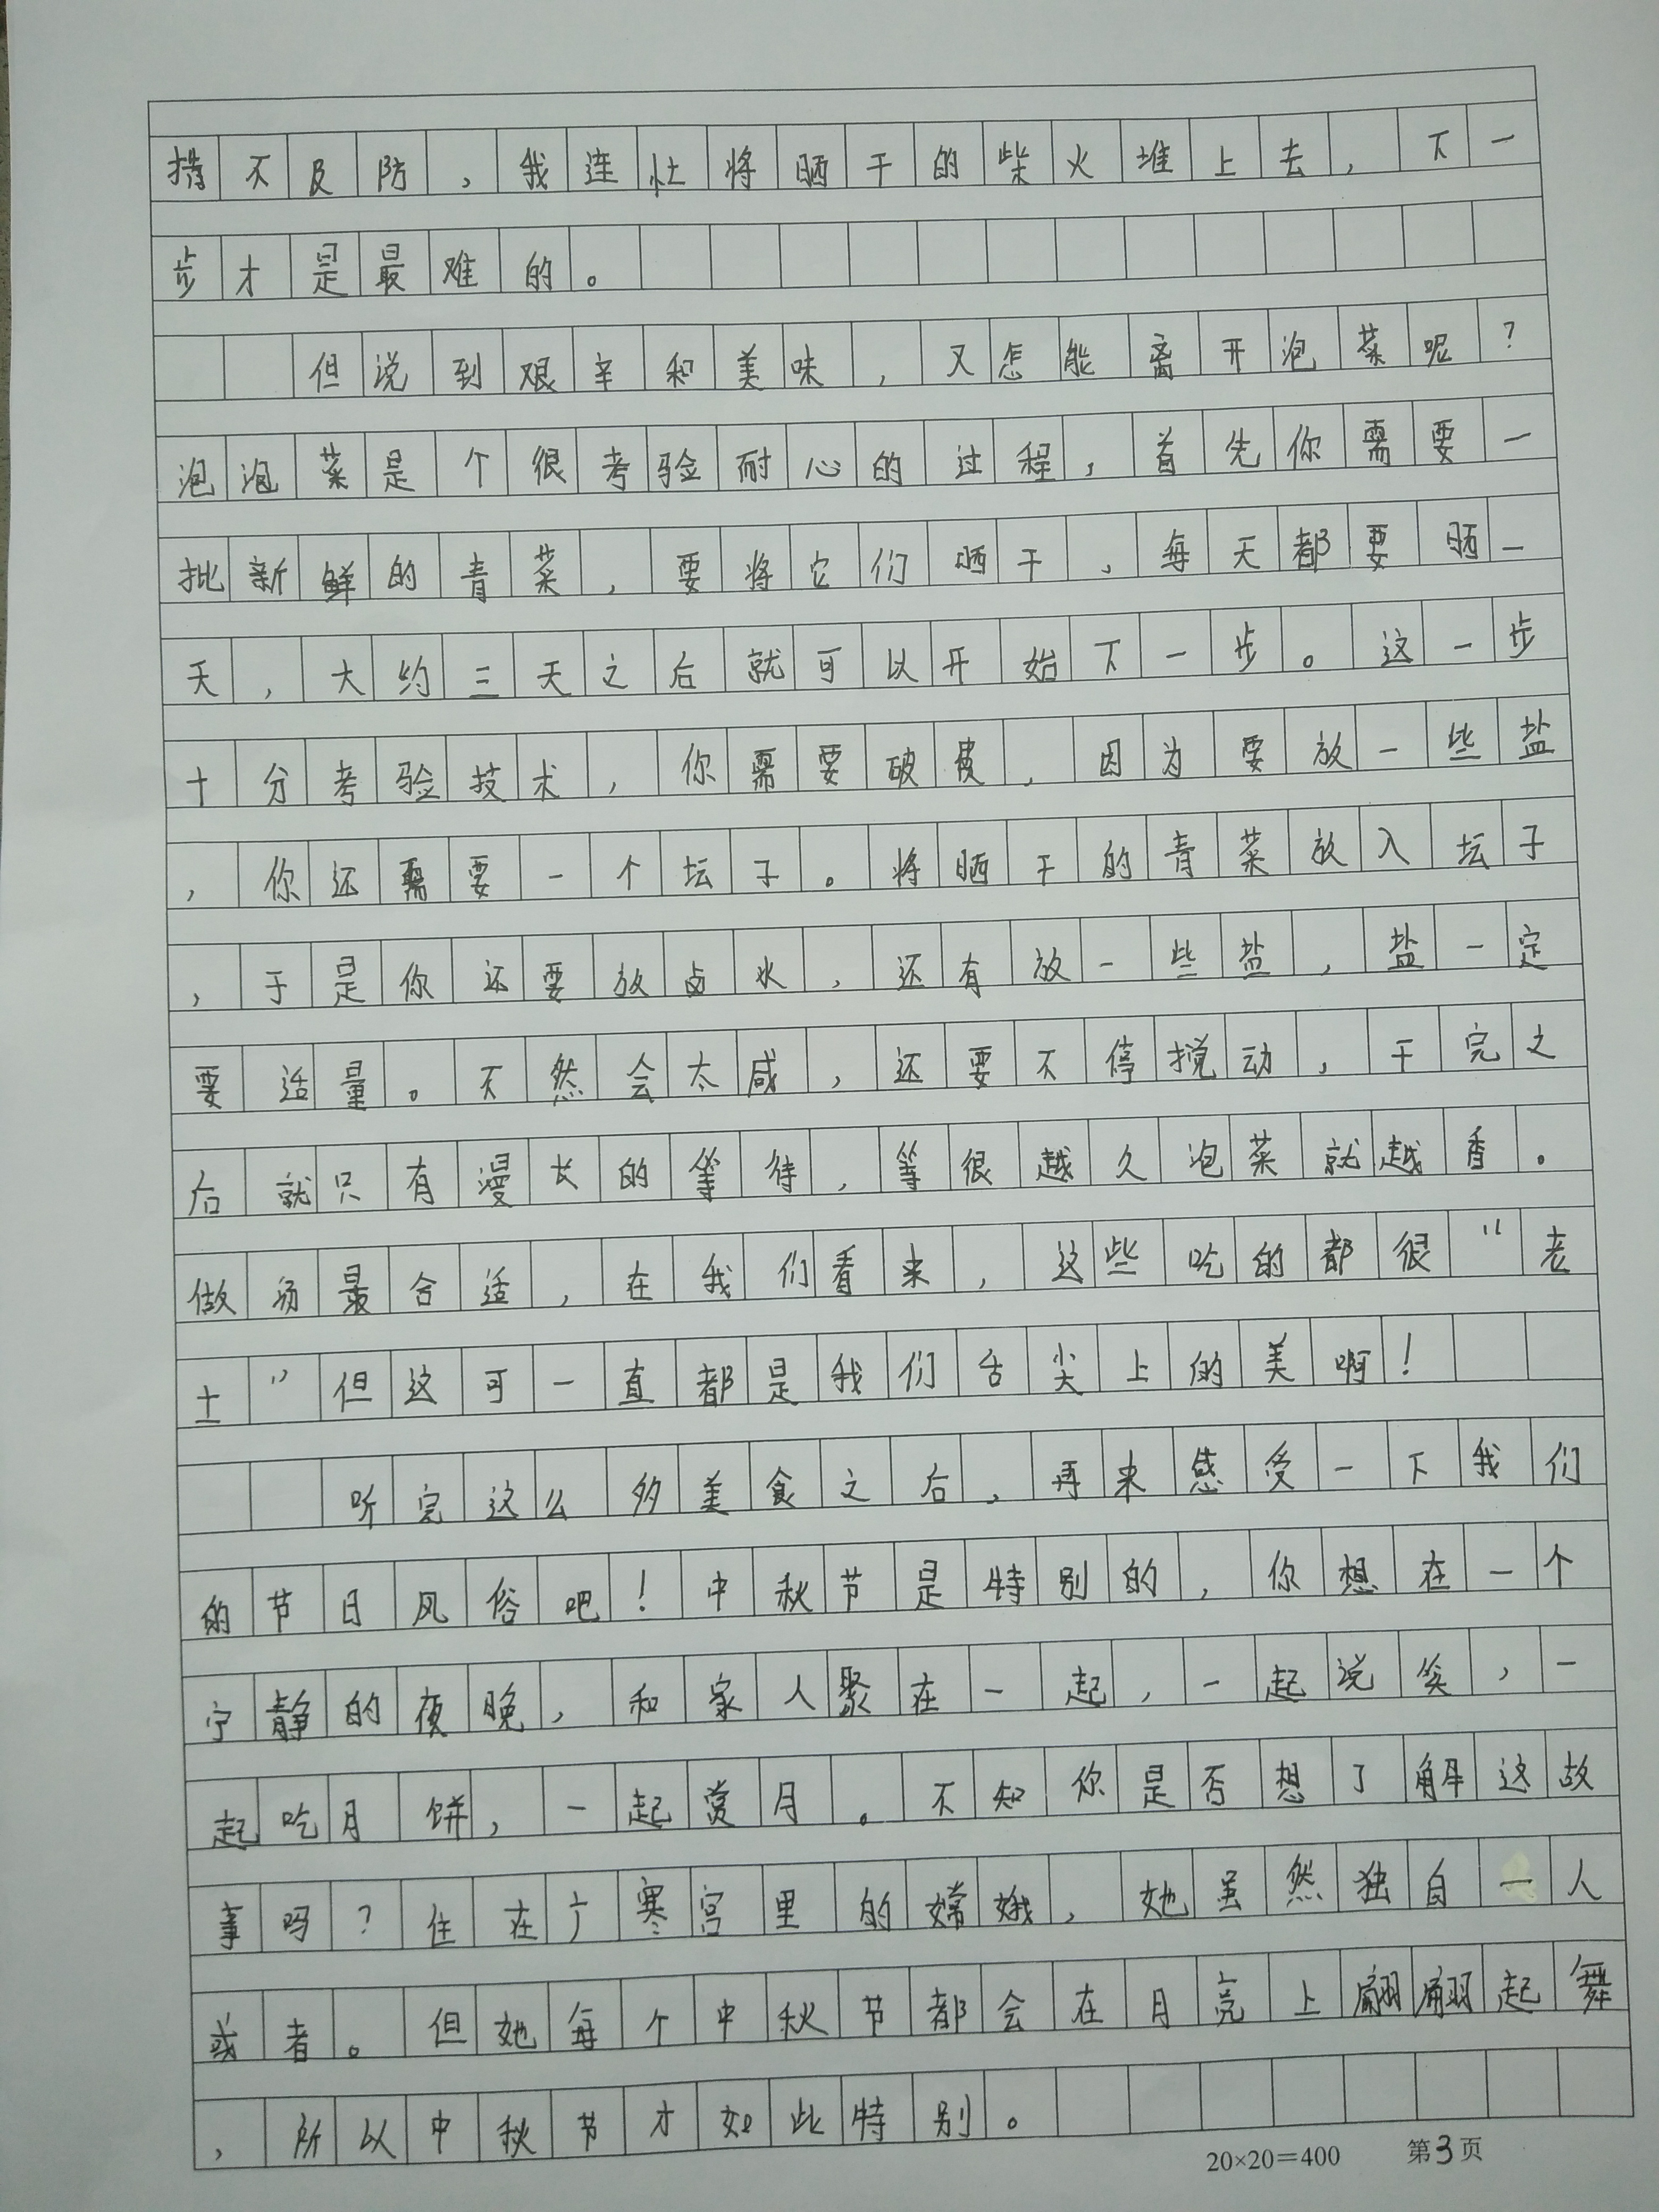 措不及防，我连忙将晒干的柴火堆上去，下一
步才是最难的。
但说到艰辛和美味，又怎能离开泡菜呢？
泡泡菜是个很考验耐心的过程，首先你需要一
批新鲜的青菜，要将它们晒干，每天都要晒一
天，大约三天之后就可以开始下一步。这一步
十分考验技术，你需要破费，因为要放一些盐
，你还需要一个坛子。将晒干的青菜放入坛子
，于是你还要放卤水，还有放一些盐，盐一定
要适量。不然会太咸，还要不停搅动，干完之
后就只有漫长的等待，等很越久泡菜就越香。
做汤最合适，在我们看来，这些吃的都很“老
土”但这可一直都是我们舌尖上的美啊！
听完这么多美食之后，再来感受一下我们
的节日风俗吧！中秋节是特别的，你想在一个
宁静的夜晚，和家人聚在一起，一起说笑，一
起吃月饼，一起赏月。不知你是否想了解这故
事吗？住在广寒宫里的嫦娥，她虽然独自一人
或者。但她每个中秋节都会在月亮上翩翩起舞
，所以中秋节才如此特别。
20×20＝400 第3页